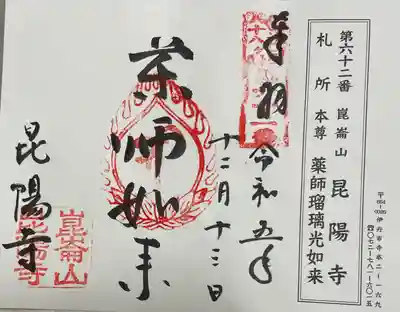 第六十二番 崑崙山 昆陽寺
札所 本尊 薬師瑠璃光如来
〒664-0026 伊丹市寺本二ー一六九
☎〇七二ー七八一ー六〇一五
奉拝
令和五年
十二月十三日
薬師如来
昆陽寺
崑崙山
昆陽寺